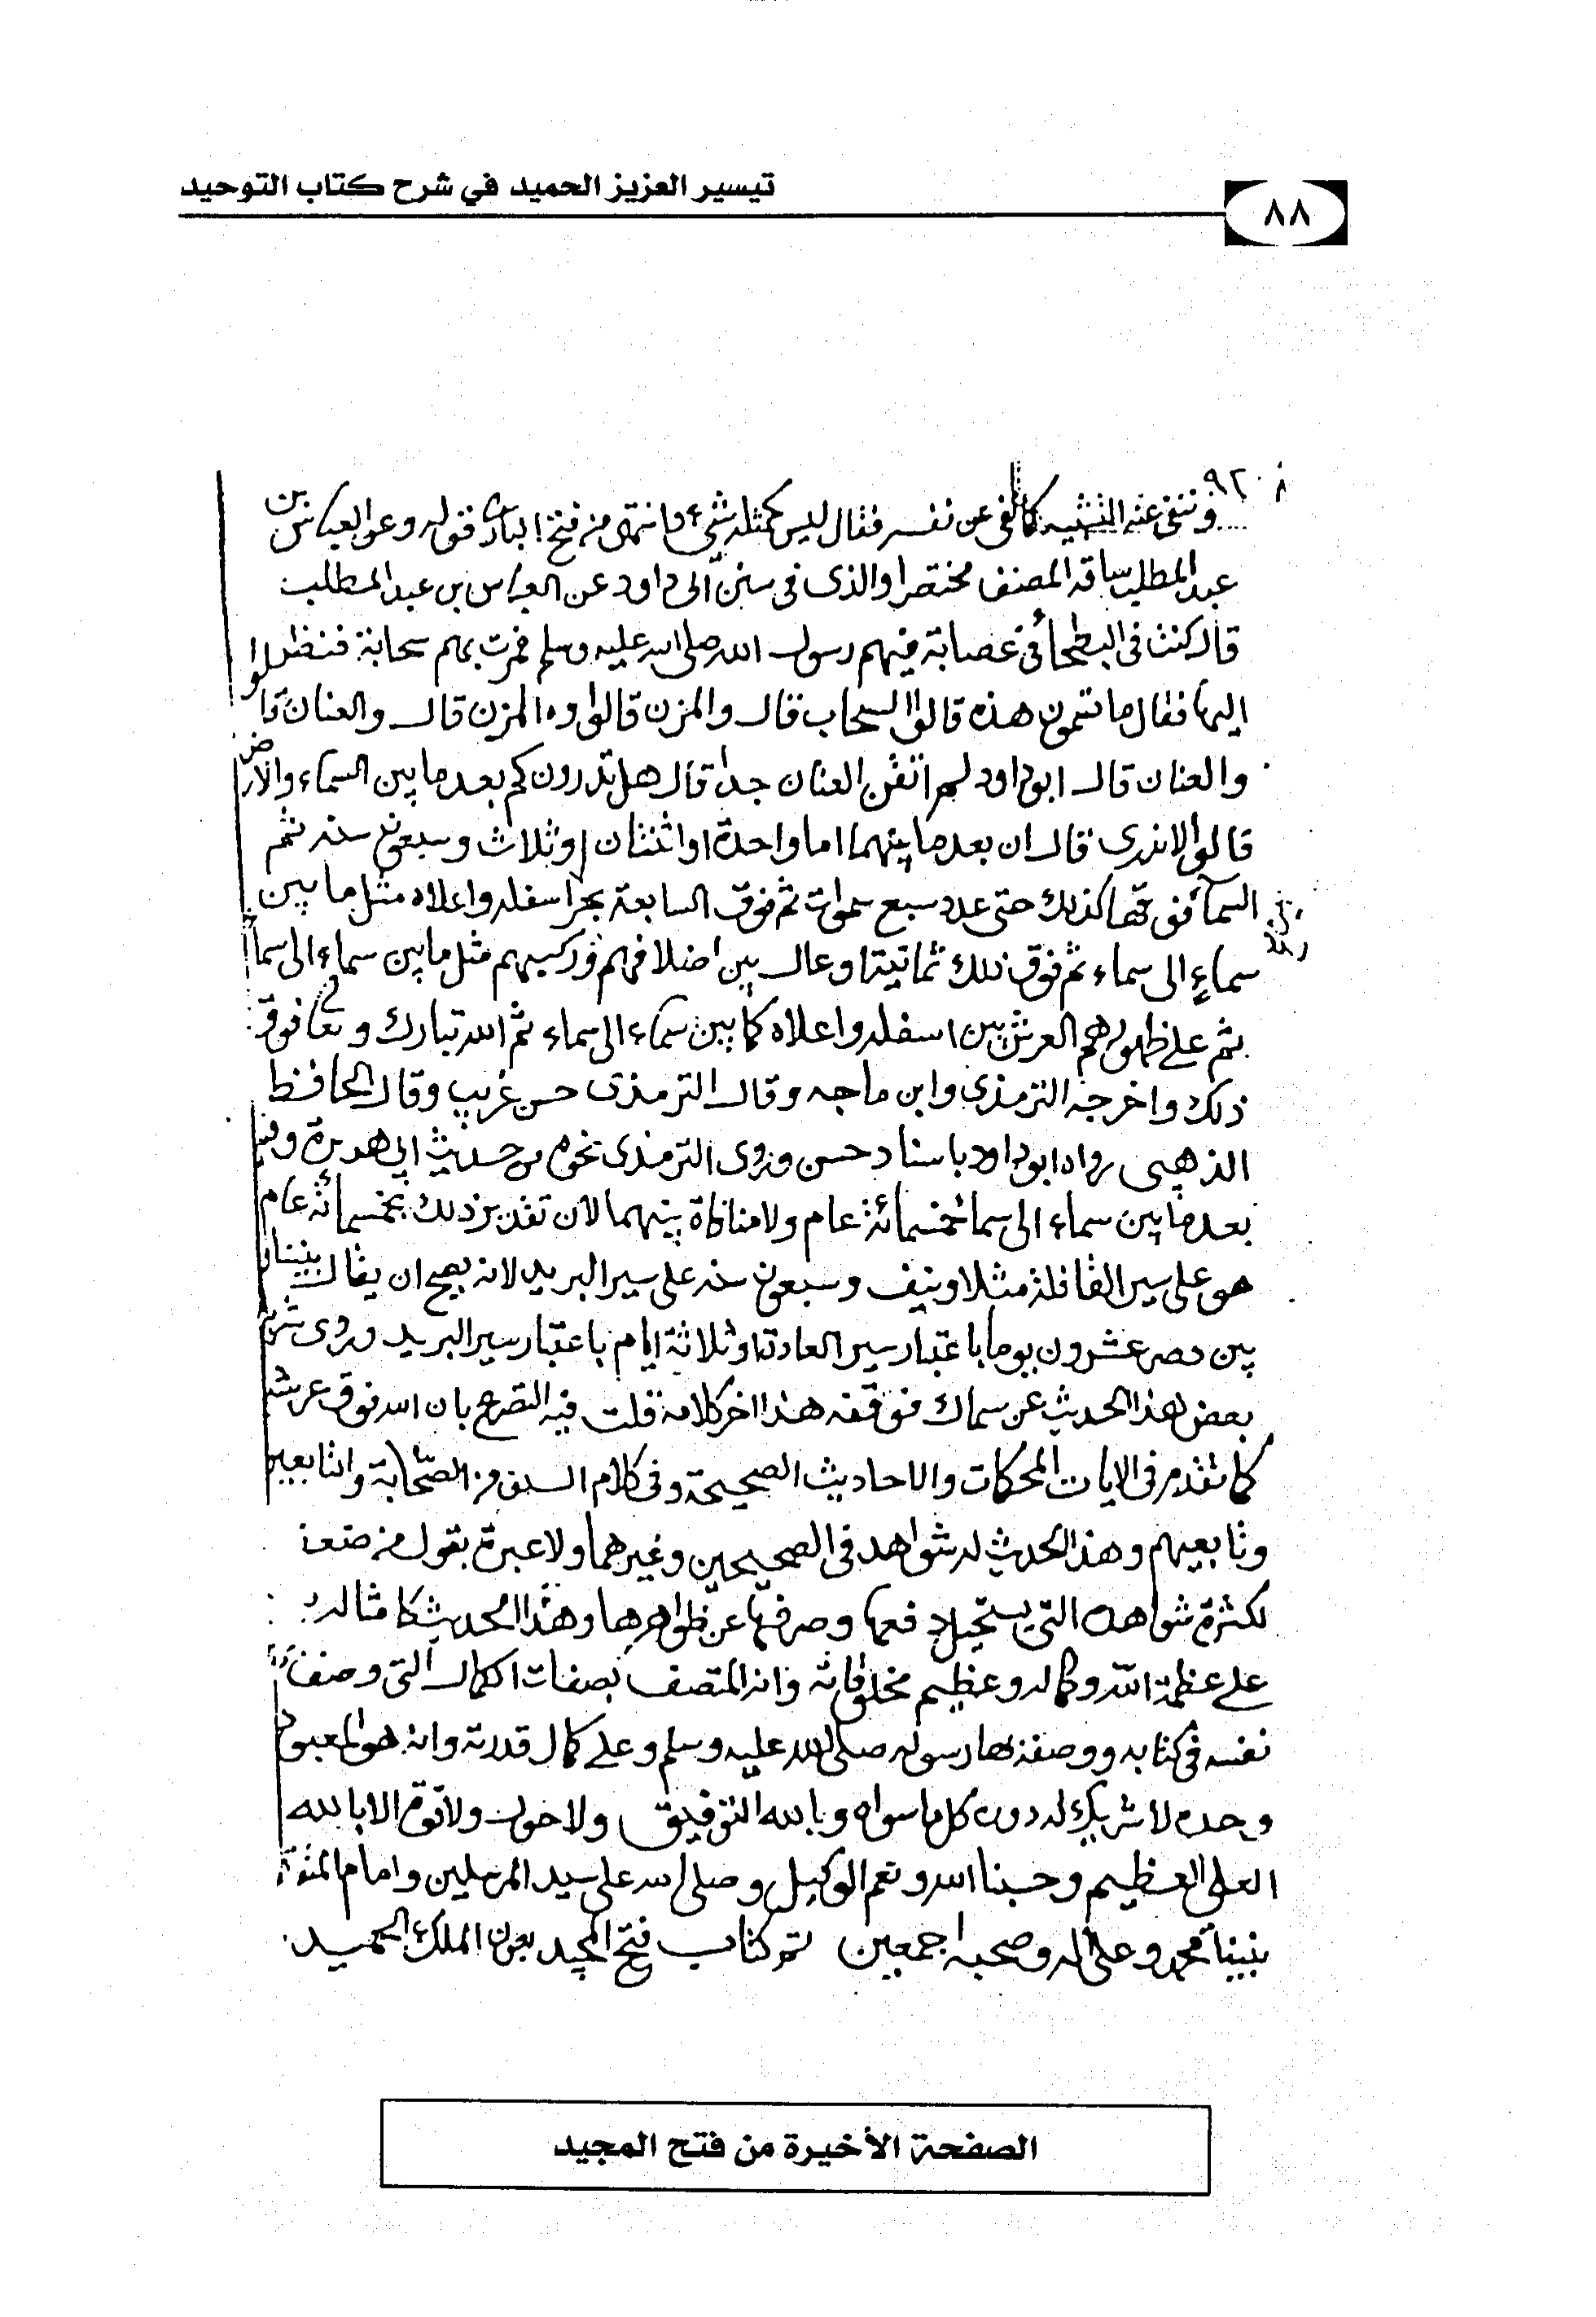 تيسير العزيز الحميد في شرح كتاب التوحيد
٨٨
٩٢
وننفى عنه التشبيه كما نفى عن نفسه فقال ليس كمثله شيء انتهى من فتح البارى قوله وعن العباس بن
عبد المطلب ساقه المصنف مختصرا والذى فى سنن ابى داود عن العباس بن عبد المطلب
قال كنت فى البطحا فى عصابة فيهم رسول الله صلى الله عليه وسلم فمرت بهم سحابة فنظروا
اليها فقال ما تسمون هذه قالوا السحاب قال والمزن قالوا والمزن قال والعنان قا
والعنان قال ابو داود لم اتقن العنان جدا قال هل تدرون كم بعد ما بين السماء والارض
قالوا لا ندرى قال ان بعد ما بينهما اما واحدة او اثنتان او ثلاث وسبعون سنه ثم
السمآء فوقها كذلك حتى عدد سبع سموات ثم فوق السابعة بحر اسفله واعلاه مثل ما بين
سماء الى سماء ثم فوق ذلك ثمانية اوعال بين اظلافهم وركبهم مثل ما بين سماء الى سما
ثم على ظهورهم العرش بين اسفله واعلاه كما بين سماء الى سماء ثم الله تبارك وتعا فوق
ذلك واخرجه الترمذى وابن ماجه وقال الترمذى حسن غريب وقال الحافظ
الذهبى رواه ابو داود باسناد حسن وروى الترمذى نحوه من حديث ابى هريرة وفيه
بعد ما بين سماء الى سما خمسمائة عام ولا منافاة بينهما لان تقدير ذلك بخمسمائة عام
هو على سير القافلة مثلا ونيف وسبعون سنه على سير البريد لانه يصح ان يقال بيننا
بين مصر عشرون يوما باعتبار سير العادة او ثلاثة ايام باعتبار سير البريد وروى شريك
بعض هذا الحديث عن سماك فوقفه هذا اخر كلامه قلت فيه التصريح بان الله فوق عرشه
كما تقدم فى الايات المحكمات والاحاديث الصحيحة وفى كلام السلف من الصحابة والتابعين
وتابعيهم وهذا الحديث له شواهد فى الصحيحين وغيرهما ولا عبرة بقول من ضعفه
لكثرة شواهده التى يستحيل دفعها وصرفها عن ظواهرها وهذا الحديث كامثاله
على عظمة الله وكماله وعظيم مخلوقاته وانه المتصف بصفات الكمال التى وصف
نفسه فى كتابه ووصفه بها رسوله صلى الله عليه وسلم وعلى كمال قدرته وانه هو المعبود
وحده لا شريك له دون كل ما سواه وبالله التوفيق ولا حول ولا قوة الا بالله
العلى العظيم وحسبنا الله ونعم الوكيل وصلى الله على سيد المرسلين وامام المتقين
نبينا محمد وعلى اله وصحبه اجمعين تم كتاب فتح المجيد بعون الملك الحميد
الصفحة الأخيرة من فتح المجيد